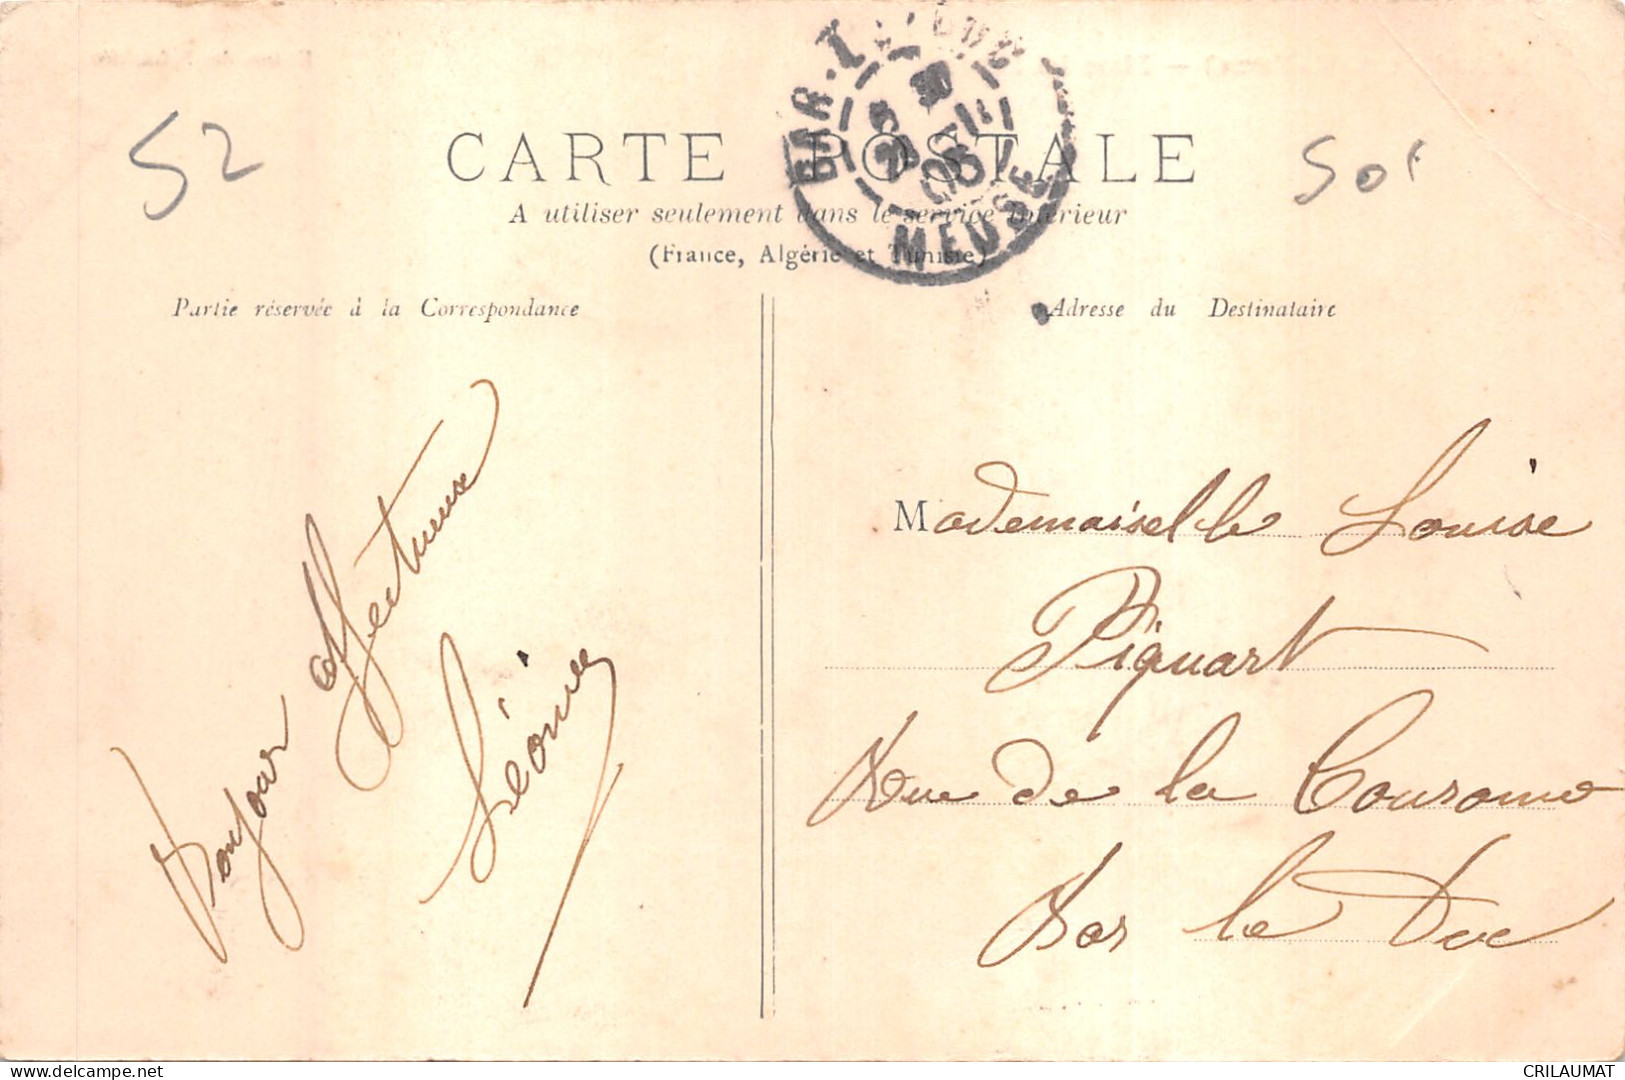 52
CARTE POSTALE
50f
BAR-
MEUSE
A utiliser seulement dans le service intérieur
(France, Algérie et Tunisie)
Partie réservée à la Correspondance
Adresse du Destinataire
Bonjour affectueux
Léonie
Mademaiselle Louise
Piquart
Rue de la Couronne
Bar le Duc
delcampe.net
CRILAUMAT